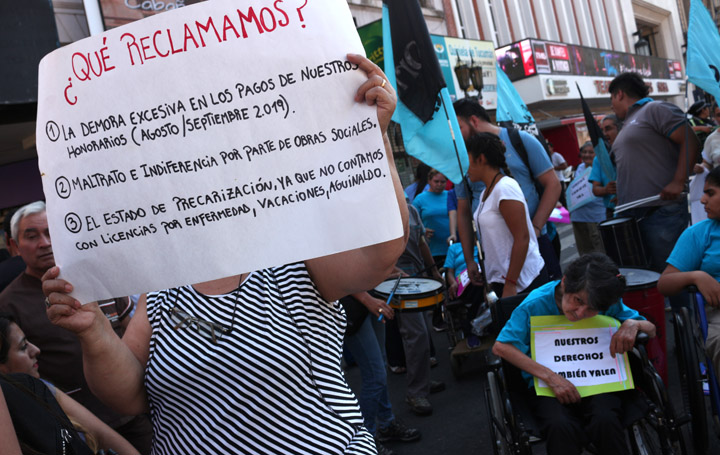 ¿QUÉ RECLAMAMOS?
① LA DEMORA EXCESIVA EN LOS PAGOS DE NUESTROS
HONORARIOS (AGOSTO/SEPTIEMBRE 2019).
② MALTRATO E INDIFERENCIA POR PARTE DE OBRAS SOCIALES.
③ EL ESTADO DE PRECARIZACIÓN, YA QUE NO CONTAMOS
CON LICENCIAS POR ENFERMEDAD, VACACIONES, AGUINALDO.
NUESTROS
DERECHOS
TAMBIÉN VALEN